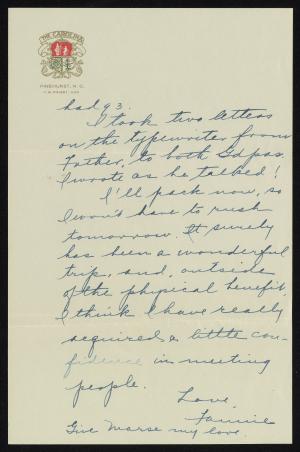 THE CAROLINA
PINEHURST, N. C.
had 93.
I took two letters
on the typewriter from
Father, to both Gdpas.
I wrote as he talked!
I'll pack now, so
I won't have to rush
tomorrow. It surely
has been a wonderful
trip, and, outside
of the physical benefit,
I think I have really
acquired a little con-
fidence in meeting
people.
Love,
Fannie
Give Marse my love.